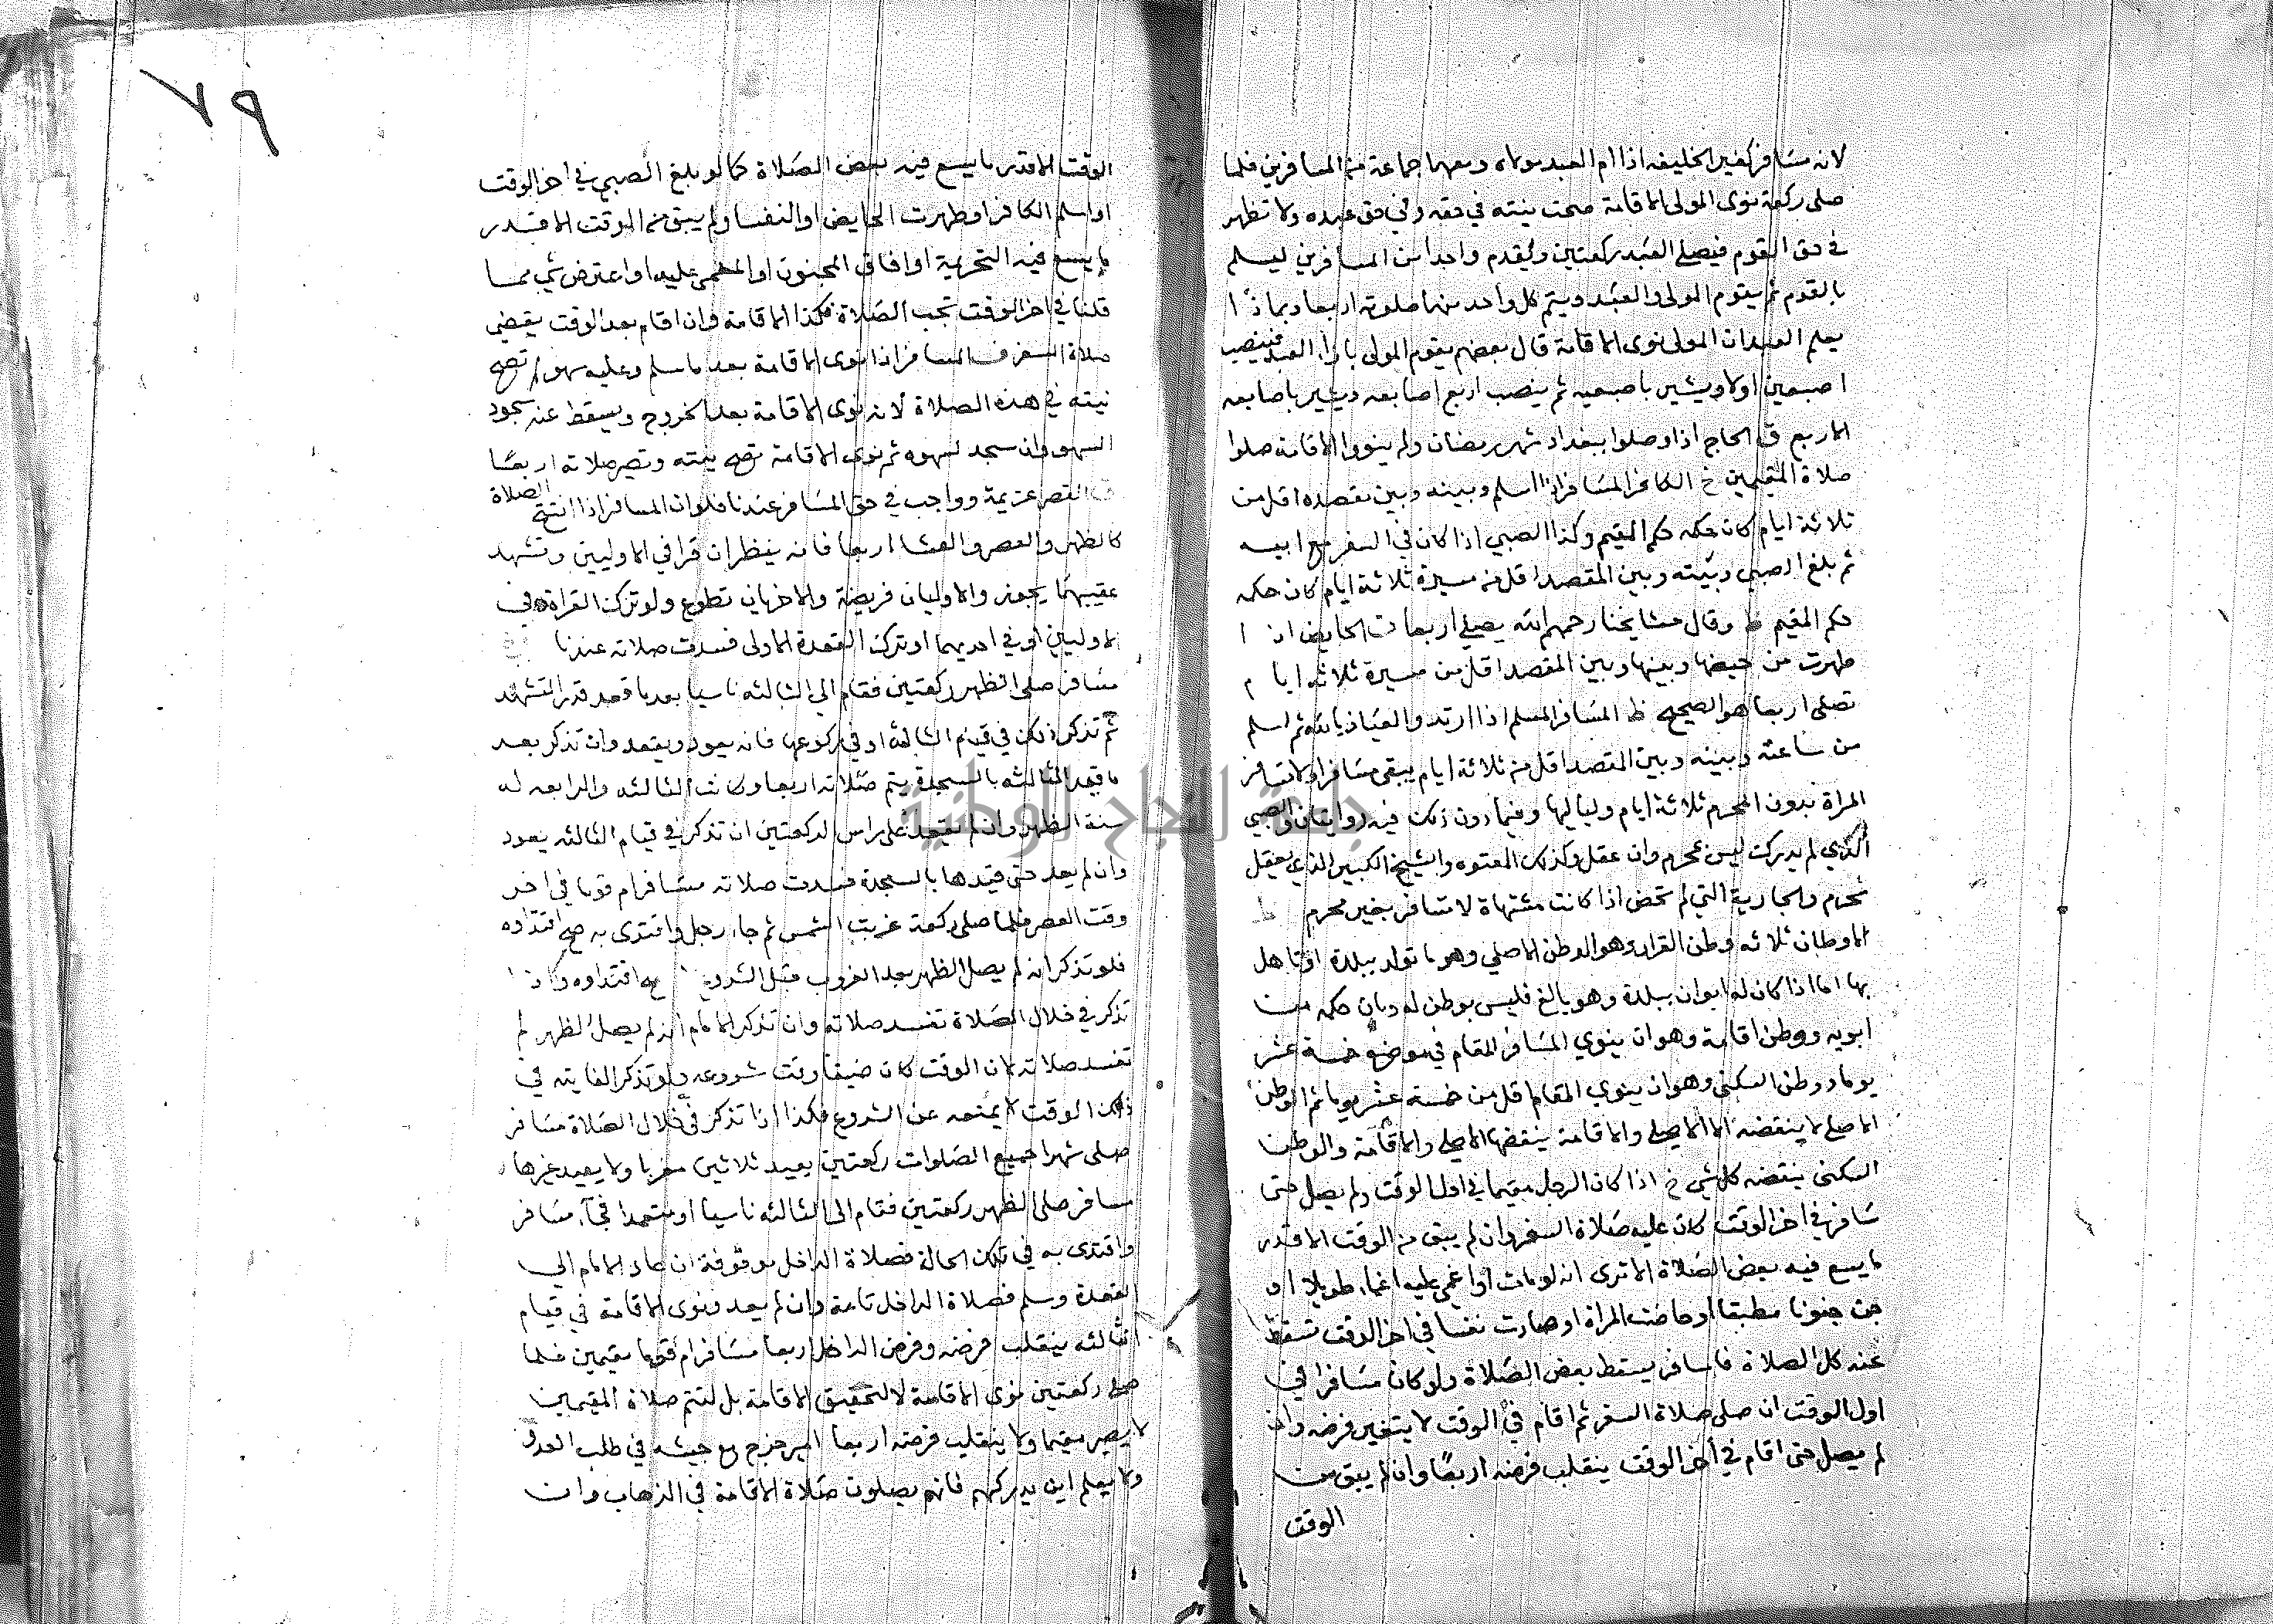 لانه مسافر كغير الخليفه اذا ام العبد مولاه ومعهما جماعة من المسافرين فلما
صلى ركعة نوى المولى الاقامة صحت نيته في حقه وفي حق عبده ولا تظهر
في حق القوم فيصلي العبد ركعتين ويقدم واحدا من المسافرين ليسلم
بالقوم ثم يقوم المولى والعبد ويتم كل واحد منهما صلوته اربعا وبماذا
يعلم العبد ان المولى نوى الاقامة قال بعضهم يقوم المولى بازا العبد فينصب
اصبعين اولا ويشير باصبعيه ثم ينصب اربع اصابعه ويشير باصابعه
الاربع ق الحاج اذا وصلوا بغداد شهر رمضان ولم ينووا الاقامة صلوا
صلاة المقيمين خ الكافر المسافر اذا اسلم وبينه وبين مقصده اقل من
ثلاثة ايام كان حكمه حكم المقيم وكذا الصبي اذا كان في السفر مع ابيه
ثم بلغ الصبي وبينه وبين المقصد اقل من مسيرة ثلاثة ايام كان حكمه
حكم المقيم ظ وقال مشايخنا رحمهم الله يصلي اربعا الحايض اذا
طهرت من حيضها وبينها وبين المقصد اقل من مسيرة ثلاثة ايام
تصلى اربعا هو الصحيح ظ المسافر المسلم اذا ارتد والعياذ بالله ثم اسلم
من ساعته وبينه وبين المقصد اقل من ثلاثة ايام يبقى مسافرا ولا تسافر
المراة بدون المحرم ثلاثة ايام ولياليها وفيما دون ذلك فيه روايتان والصبي
الذي لم يدرك ليس بمحرم وان عقل وكذلك المعتوه والشيخ الكبير الذي يعقل
محرم والجارية التي لم تحض اذا كانت مشتهاة لا تسافر بغير محرم
الاوطان ثلاثه وطن القرار وهو الوطن الاصلي وهو ما تولد ببلدة او تاهل
بها اما اذا كان له ابوان ببلدة وهو بالغ فليس بوطن له وبان حكمه من
ابويه ووطن اقامة وهو ان ينوي المسافر المقام في موضع خمسة عشر
يوما ووطن السكنى وهو ان ينوي المقام اقل من خمسة عشر يوما ثم الوطن
الاصلي لا ينقضه الا الاصلي والاقامة ينقضها الاصلي والاقامة والوطن
السكنى ينقضه كل شي خ اذا كان الرجل مقيما في اول الوقت ولم يصل حتى
سافر في اخر الوقت كان عليه صلاة السفر وان لم يبق من الوقت الا قدر
ما يسع فيه بعض الصلاة الا ترى انه لو مات او اغمي عليه اغماء طويلا او
جن جنونا مطبقا او حاضت المراة او صارت نفسا في اخر الوقت تسقط
عنه كل الصلاة فاسافر يسقط بعض الصلاة ولو كان مسافرا في
اول الوقت ان صلى صلاة السفر ثم اقام في الوقت لا يتغير فرضه وان
لم يصل حتى اقام في اخر الوقت ينقلب فرضه اربعا وان لم يبق من
الوقت
٧٩
الوقت الا قدر ما يسع فيه بعض الصلاة كما لو بلغ الصبي في اخر الوقت
او اسلم الكافر او طهرت الحايض او النفسا ولم يبق من الوقت الا قدر
ما يسع فيه التحريمة او افاق المجنون او المغمى عليه او اعترض شي مما
قلنا في اخر الوقت تجب الصلاة فكذا الاقامة وان اقام بعد الوقت يقضي
صلاة السفر ف المسافر اذا نوى الاقامة بعد ما سلم وعليه سهو لم تصح
نيته في هذه الصلاة لانه نوى الاقامة بعد الخروج ويسقط عنه سجود
السهو وان سجد لسهوه ثم نوى الاقامة تصح نيته وتصير صلاته اربعا
القصر عزيمة وواجب في حق المسافر عندنا فلو ان المسافر اذا افتتح الصلاة
كالظهر والعصر والعشا اربعا فانه ينظر ان قرا في الاوليين وتشهد
عقيبهما يجوز والاوليان فريضة والاخريان تطوع ولو ترك القراة في
الاوليين او في احديهما او ترك القعدة الاولى فسدت صلاته عندنا
مسافر صلى الظهر ركعتين فقام الى الثالثه ناسيا بعد ما قعد قدر التشهد
ثم تذكر ذلك في قيام الثالثة او في ركوعها فانه يعود ويقعد وان تذكر بعد
ما قيد الثالثه بالسجدة يتم صلاته اربعا وكانت الثالثه والرابعه له
سنة الظهر وان لم يقعد على راس الركعتين ان تذكر في قيام الثالثه يعود
وان لم يعد حتى قيدها بالسجدة فسدت صلاته مسافر ام قوما في اخر
وقت العصر فلما صلى ركعة غربت الشمس ثم جاء رجل واقتدى به صح اقتداوه
فلو تذكر انه لم يصل الظهر بعد الغروب قبل الشروع صح اقتداوه واذا
تذكر في خلال الصلاة تفسد صلاته وان تذكر الامام انه لم يصل الظهر لم
تفسد صلاته لان الوقت كان ضيقا وقت شروعه ولو تذكر الفايته في
ذلك الوقت لا يمنعه عن الشروع فكذا اذا تذكر في خلال الصلاة مسافر
صلى شهرا جميع الصلوات ركعتين يعيد ثلاثين مغربا ولا يعيد غيرها
مسافر صلى الظهر ركعتين فقام الى الثالثه ناسيا او متعمدا فجاء مسافر
واقتدى به في تلك الحالة فصلاة الداخل موقوفة ان عاد الامام الى
القعدة وسلم فصلاة الداخل تامة وان لم يعد ونوى الاقامة في قيام
الثالثه ينقلب فرضه وفرض الداخل اربعا مسافر ام قوما مقيمين فلما
صلى ركعتين نوى الاقامة لا لتحقيق الاقامة بل لتتم صلاة المقيمين
لا يصير مقيما ولا ينقلب فرضه اربعا امير خرج مع جيشه في طلب العدو
ولا يعلم اين يدركهم فانهم يصلون صلاة الاقامة في الذهاب وان
جامعة النجاح الوطنية